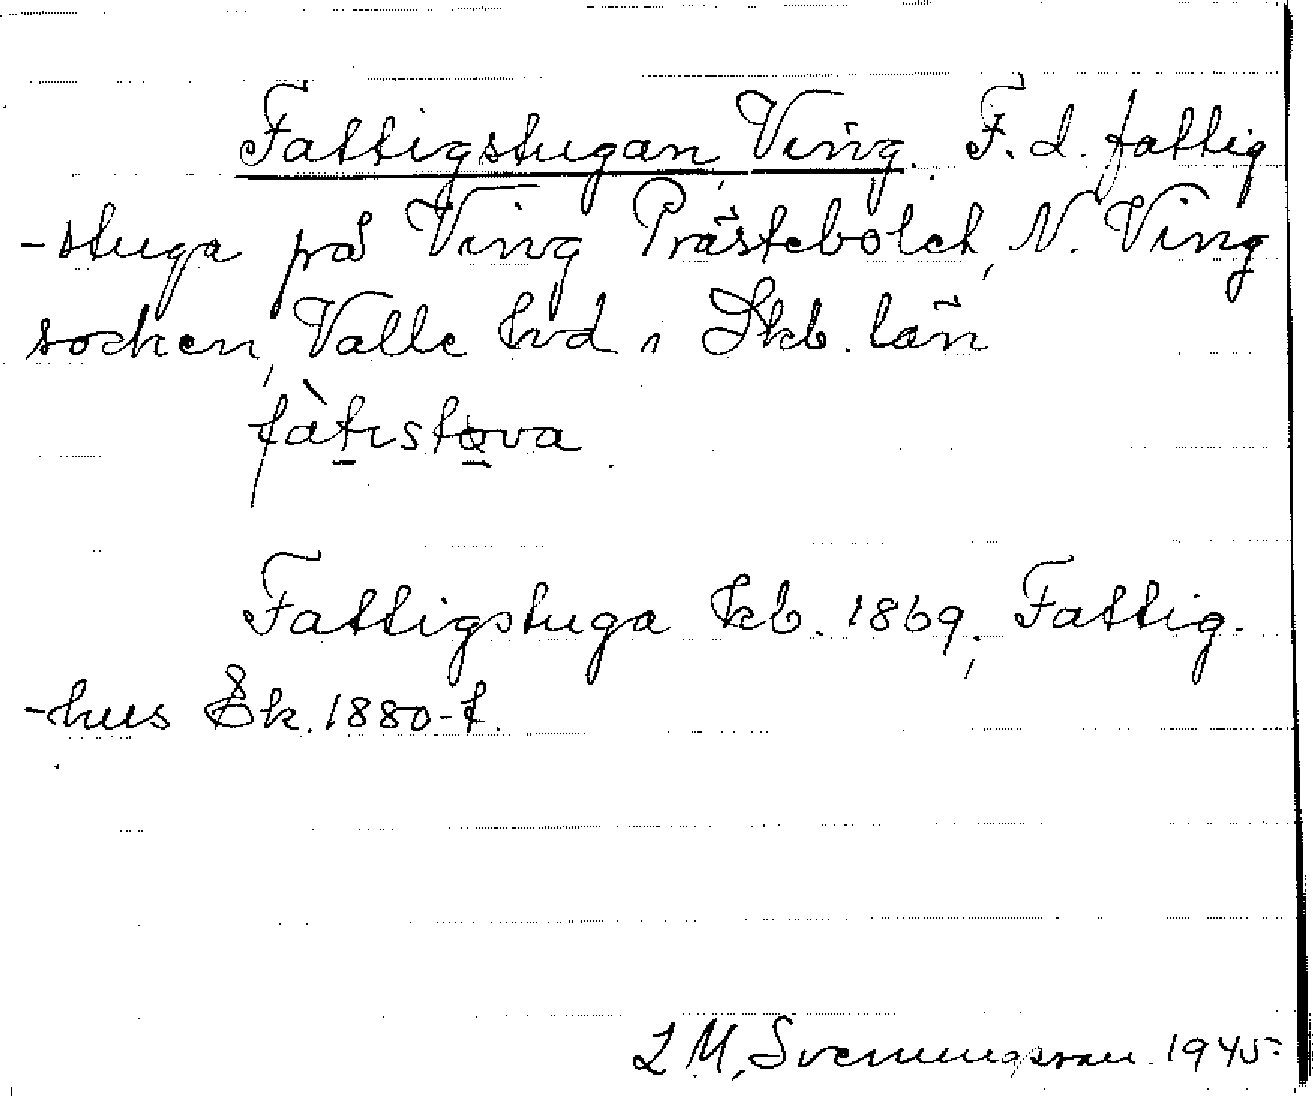 Fattigstugan, Ving. F. d. fattig
-stuga på Ving Prästebolet, N. Ving
socken, Valle hrd i Skb. län
fàtɩstɷva
Fattigstuga kb. 1869, Fattig-
-hus Ek. 1880-t.
L M, Svenungsson 1945